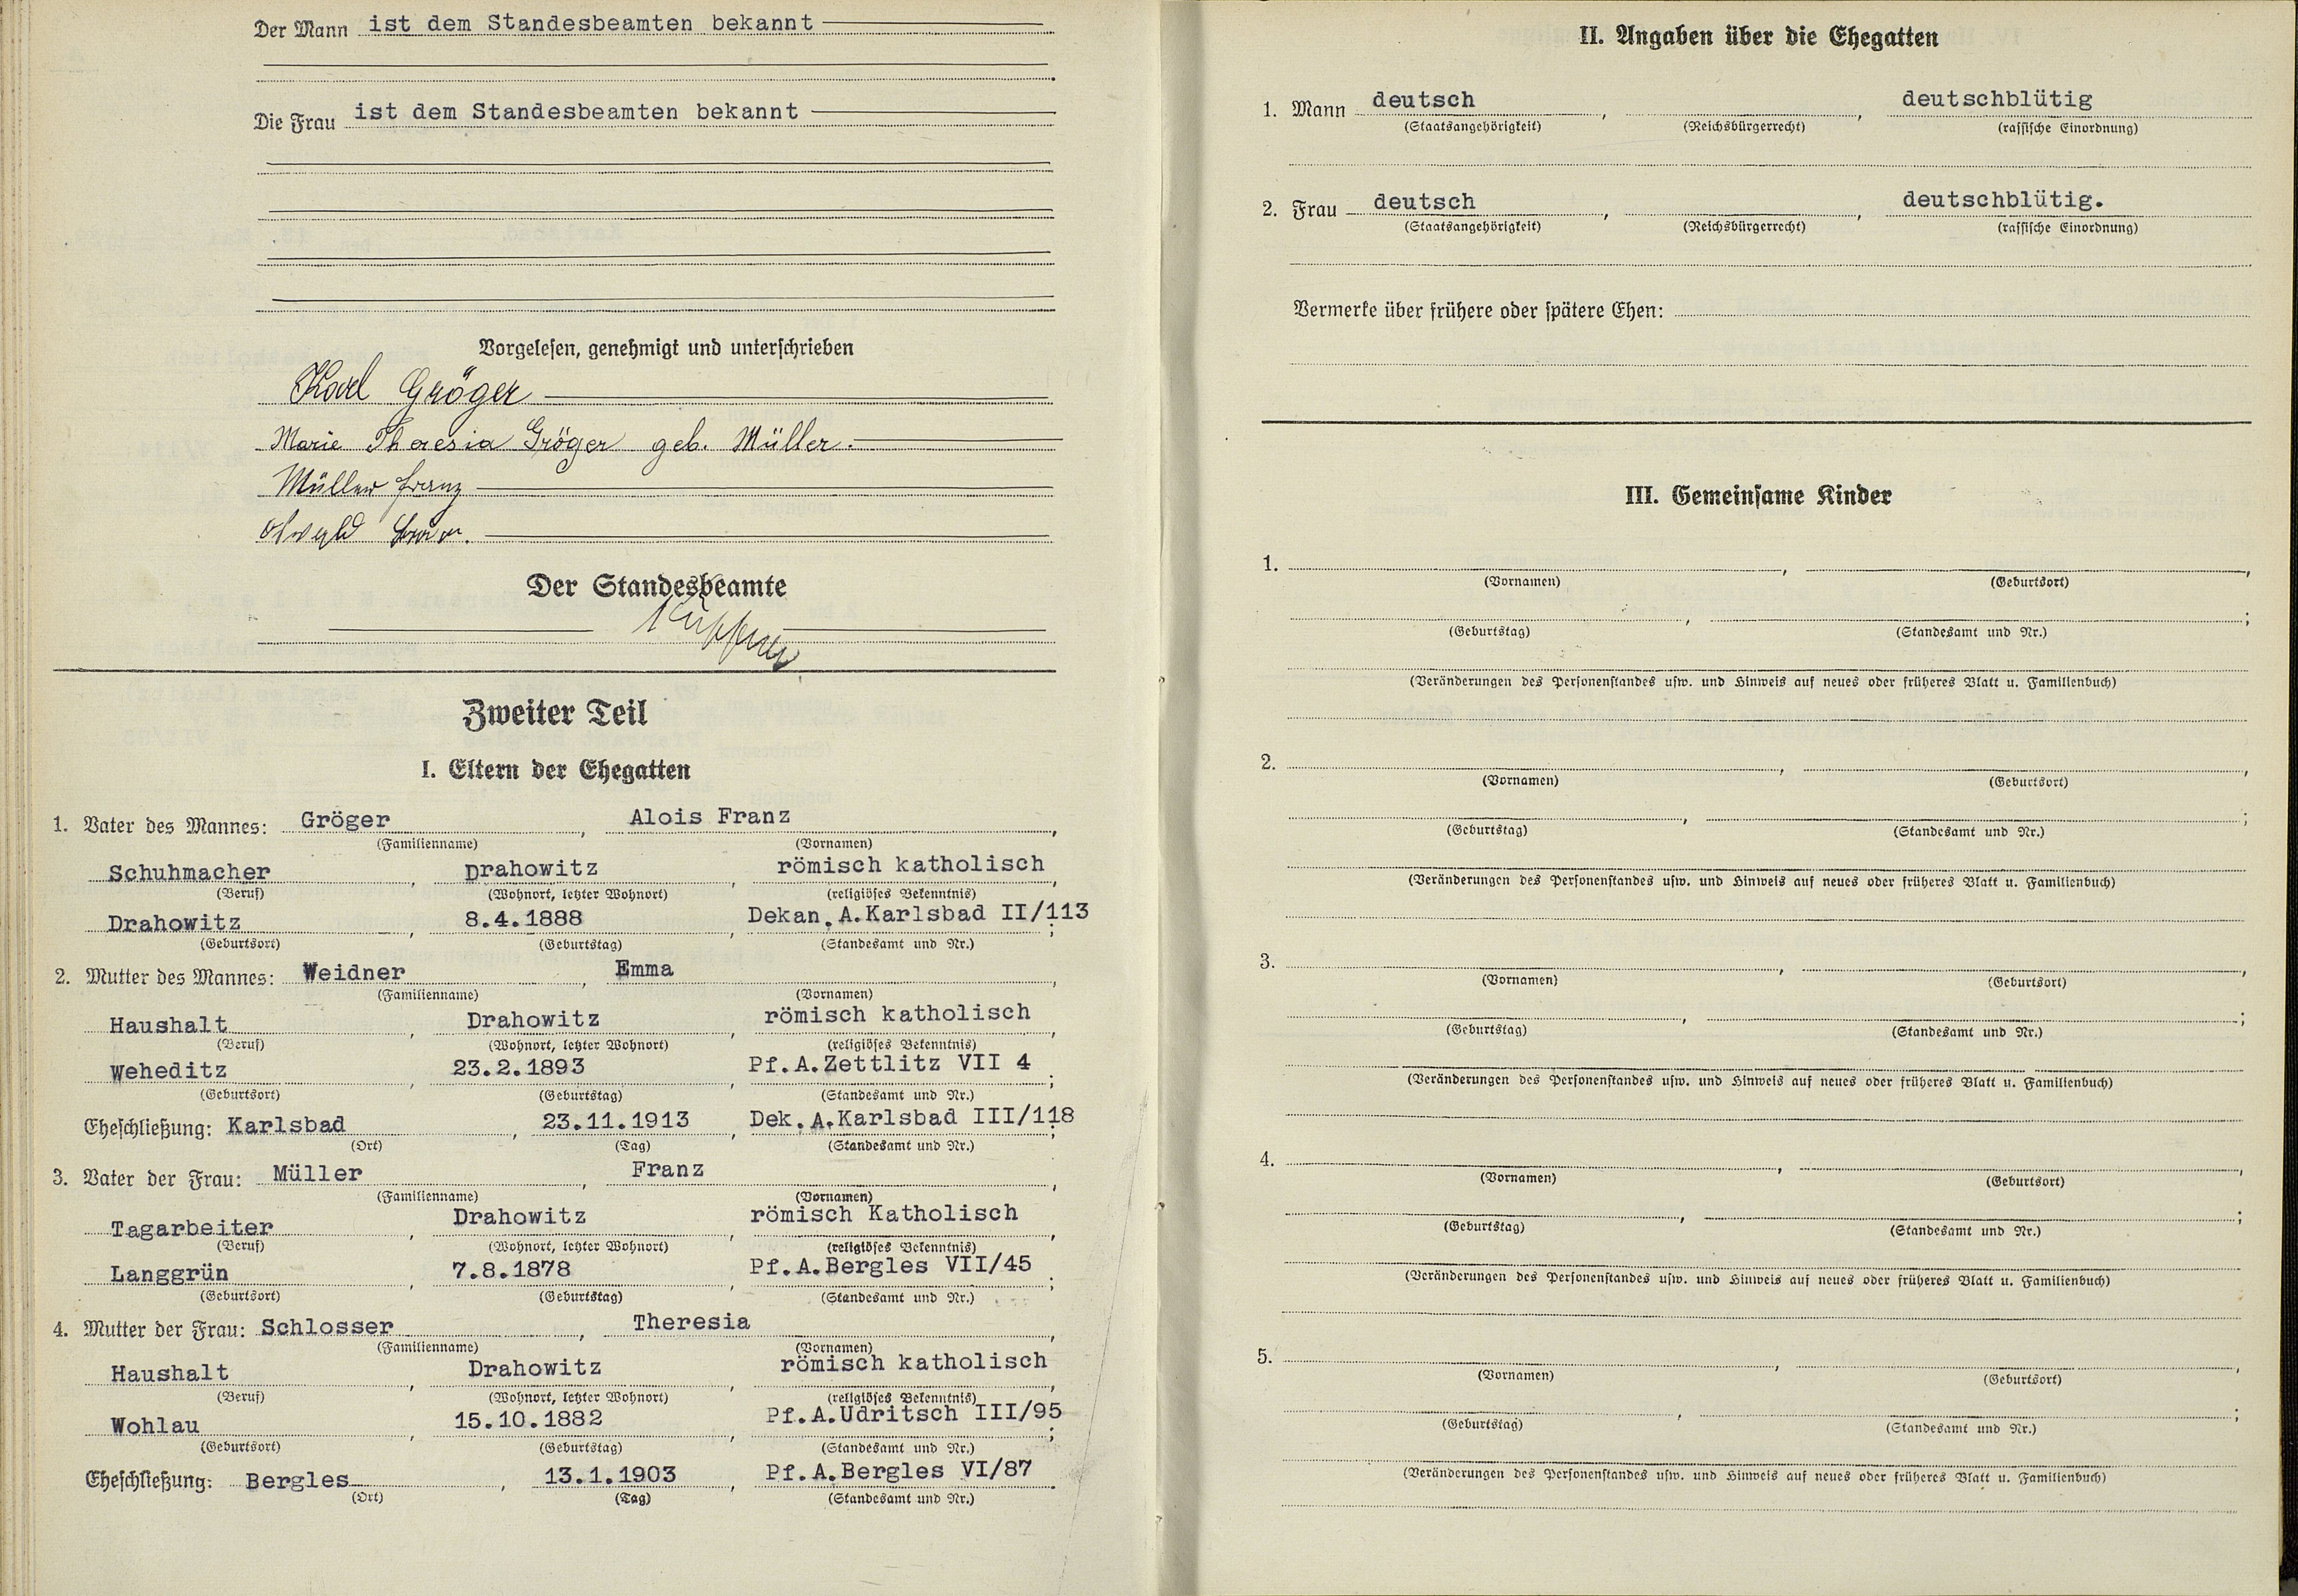 Der Mann ist dem Standesbeamten bekannt
Die Frau ist dem Standesbeamten bekannt
Vorgelesen, genehmigt und unterschrieben
Karl Gröger
Marie Theresia Gröger geb. Müller.
Müller Franz
Der Standesbeamte
Zweiter Teil
I. Eltern der Ehegatten
1. Vater des Mannes: Gröger, Alois Franz,
(Familienname) (Vornamen)
Schuhmacher, Drahowitz, römisch katholisch,
(Beruf) (Wohnort, letzter Wohnort) (religiöses Bekenntnis)
Drahowitz, 8.4.1888, Dekan.A.Karlsbad II/113;
(Geburtsort) (Geburtstag) (Standesamt und Nr.)
2. Mutter des Mannes: Weidner, Emma,
(Familienname) (Vornamen)
Haushalt, Drahowitz, römisch katholisch,
(Beruf) (Wohnort, letzter Wohnort) (religiöses Bekenntnis)
Weheditz, 23.2.1893, Pf.A.Zettlitz VII 4;
(Geburtsort) (Geburtstag) (Standesamt und Nr.)
Eheschließung: Karlsbad, 23.11.1913, Dek.A.Karlsbad III/118;
(Ort) (Tag) (Standesamt und Nr.)
3. Vater der Frau: Müller, Franz,
(Familienname) (Vornamen)
Tagarbeiter, Drahowitz, römisch Katholisch,
(Beruf) (Wohnort, letzter Wohnort) (religiöses Bekenntnis)
Langgrün, 7.8.1878, Pf.A.Bergles VII/45;
(Geburtsort) (Geburtstag) (Standesamt und Nr.)
4. Mutter der Frau: Schlosser, Theresia,
(Familienname) (Vornamen)
Haushalt, Drahowitz, römisch katholisch,
(Beruf) (Wohnort, letzter Wohnort) (religiöses Bekenntnis)
Wohlau, 15.10.1882, Pf.A.Udritsch III/95;
(Geburtsort) (Geburtstag) (Standesamt und Nr.)
Eheschließung: Bergles, 13.1.1903, Pf.A.Bergles VI/87
(Ort) (Tag) (Standesamt und Nr.)
II. Angaben über die Ehegatten
1. Mann deutsch, , deutschblütig
(Staatsangehörigkeit) (Reichsbürgerrecht) (rassische Einordnung)
2. Frau deutsch, , deutschblütig.
(Staatsangehörigkeit) (Reichsbürgerrecht) (rassische Einordnung)
Vermerke über frühere oder spätere Ehen:
III. Gemeinsame Kinder
1. , ,
(Vornamen) (Geburtsort)
, ;
(Geburtstag) (Standesamt und Nr.)
(Veränderungen des Personenstandes usw. und Hinweis auf neues oder früheres Blatt u. Familienbuch)
2. , ,
(Vornamen) (Geburtsort)
, ;
(Geburtstag) (Standesamt und Nr.)
(Veränderungen des Personenstandes usw. und Hinweis auf neues oder früheres Blatt u. Familienbuch)
3. , ,
(Vornamen) (Geburtsort)
, ;
(Geburtstag) (Standesamt und Nr.)
(Veränderungen des Personenstandes usw. und Hinweis auf neues oder früheres Blatt u. Familienbuch)
4. , ,
(Vornamen) (Geburtsort)
, ;
(Geburtstag) (Standesamt und Nr.)
(Veränderungen des Personenstandes usw. und Hinweis auf neues oder früheres Blatt u. Familienbuch)
5. , ,
(Vornamen) (Geburtsort)
, ;
(Geburtstag) (Standesamt und Nr.)
(Veränderungen des Personenstandes usw. und Hinweis auf neues oder früheres Blatt u. Familienbuch)